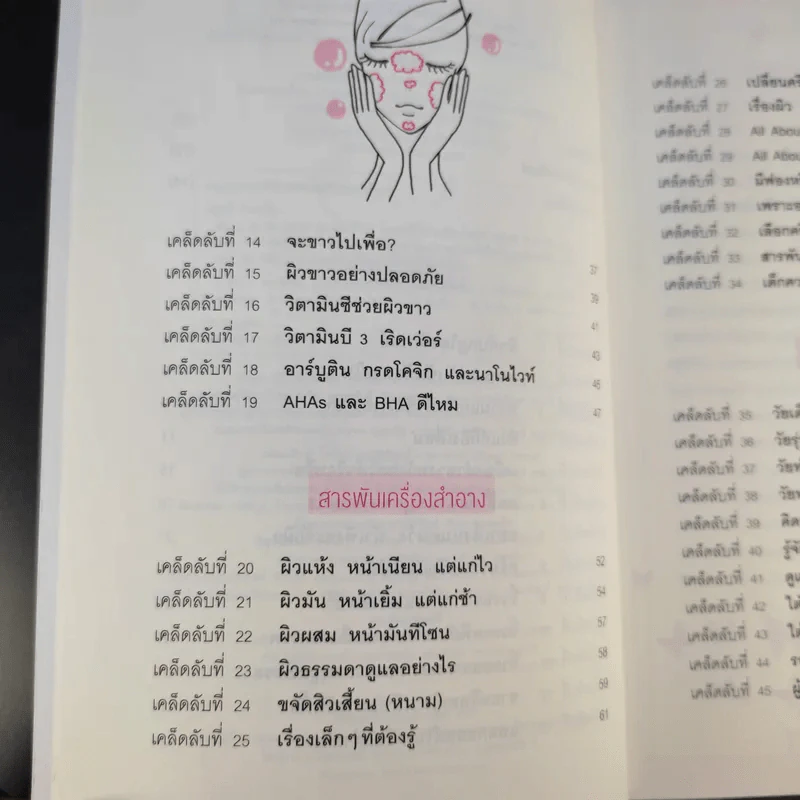 เคล็ดลับที่ 14 จะขาวไปเพื่อ?
เคล็ดลับที่ 15 ผิวขาวอย่างปลอดภัย 37
เคล็ดลับที่ 16 วิตามินซีช่วยผิวขาว 39
เคล็ดลับที่ 17 วิตามินบี 3 เริดเว่อร์ 41
เคล็ดลับที่ 18 อาร์บูติน กรดโคจิก และนาโนไวท์ 43
เคล็ดลับที่ 19 AHAs และ BHA ดีไหม 47
สารพันเครื่องสำอาง
เคล็ดลับที่ 20 ผิวแห้ง หน้าเนียน แต่แก่ไว 52
เคล็ดลับที่ 21 ผิวมัน หน้าเยิ้ม แต่แก่ช้า 54
เคล็ดลับที่ 22 ผิวผสม หน้ามันทีโซน 57
เคล็ดลับที่ 23 ผิวธรรมดาดูแลอย่างไร 58
เคล็ดลับที่ 24 ขจัดสิวเสี้ยน (หนาม) 59
เคล็ดลับที่ 25 เรื่องเล็กๆ ที่ต้องรู้ 61
เคล็ดลับที่ 26
เคล็ดลับที่ 27 เรื่องผิว
เคล็ดลับที่ 28 All
เคล็ดลับที่ 29 All
เคล็ดลับที่ 30
เคล็ดลับที่ 31
เคล็ดลับที่ 32
เคล็ดลับที่ 33
เคล็ดลับที่ 34
เคล็ดลับที่ 35
เคล็ดลับที่ 36
เคล็ดลับที่ 37
เคล็ดลับที่ 38
เคล็ดลับที่ 39
เคล็ดลับที่ 40
เคล็ดลับที่ 41
เคล็ดลับที่ 42
เคล็ดลับที่ 43
เคล็ดลับที่ 44
เคล็ดลับที่ 45